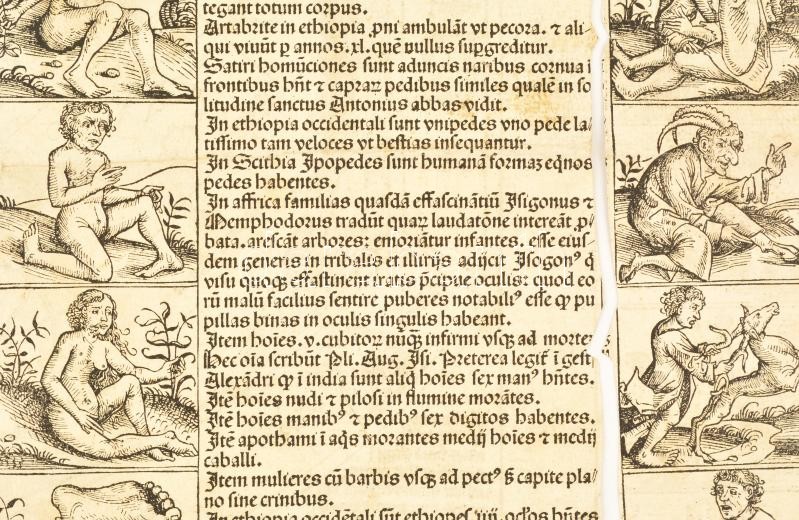 tegant totum corpus.
Artabrite in ethiopia ꝓni ambulãt vt pecora. ⁊ ali-
qui viuũt ꝑ annos .xl. quẽ nullus suꝑgreditur.
Satiri homũciones sunt aduncis naribus cornua ĩ
frontibus hñt ⁊ capraꝝ pedibus similes qualẽ in so
litudine sanctus Antonius abbas vidit.
In ethiopia occidentali sunt vnipedes vno pede la/
tissimo tam veloces vt bestias insequantur.
In Scithia Ipopedes sunt humanã formaꝫ eq̃nos
pedes habentes.
In affrica familias quasdã effascinãtiũ Isigonus ⁊
Memphodorus tradũt quaꝝ laudatõne intereãt ꝓ/
bata. arescãt arbores: emoriãtur infantes. esse eius-
dem generis in triballis et illirijs adijcit Isogonꝰ q̃
visu quoqꝫ effastinent iratis p̃cipue oculis: quod eo
rũ malũ facilius sentire puberes notabiliꝰ esse ꝙ pu
pillas binas in oculis singulis habeant.
Item hoĩes .v. cubitoꝝ nũq̃ꝫ infirmi vsqꝫ ad mortem
Hec oĩa scribũt Pli. Aug. Isi. Preterea legit᷑ ĩ gest
Alexãdri ꝙ ĩ india sunt aliq̃ hoĩes sex manꝰ hñtes.
Itẽ hoĩes nudi ⁊ pilosi in flumine morãtes.
Itẽ hoĩes manibꝰ ⁊ pedibꝰ sex digitos habentes.
Itẽ apothami ĩ aq̃s morantes medij hoĩes ⁊ medij
caballi.
Item mulieres cũ barbis vsqꝫ ad pectꝰ ß capite pla/
no sine crinibus.
In ethiopia occidẽtali sũt ethiopes .iiij. ocl̃os hñtes